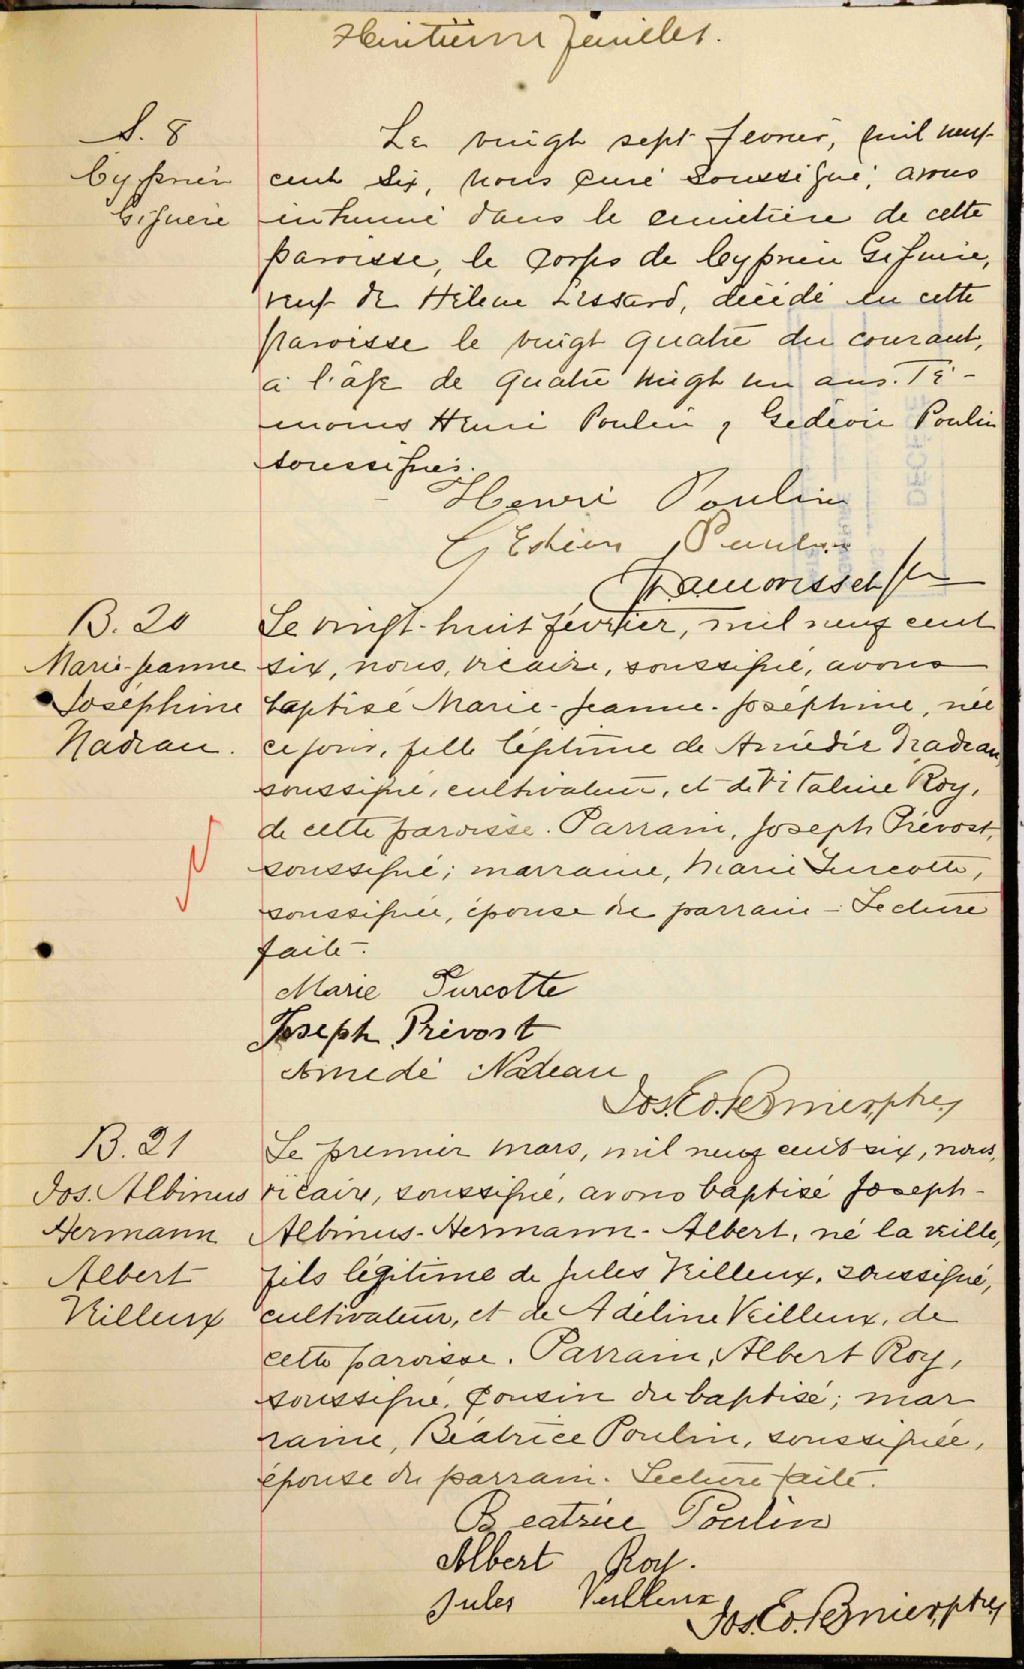 Huitième feuillet.
S. 8
Cyprien
Giguère
Le vingt sept fevrier, mil neuf
cent six, nous curé soussigné, avons
inhumé dans le cimetière de cette
paroisse, le corps de Cyprien Giguère,
veuf de Hélène Lessard, décédé en cette
paroisse le vingt quatre du courant,
à l'âge de quatre vingt un ans. Té-
moins Henri Poulin, Gédéon Poulin
soussignés.
Henri Poulin
Gédéon Poulin
B. 20
Marie-Jeanne
Joséphine
Nadeau.
Le vingt-huit février, mil neuf cent
six, nous, vicaire, soussigné, avons
baptisé Marie-Jeanne-Joséphine, née
ce jour, fille légitime de Amédée Nadeau,
soussigné, cultivateur, et de Vitaline Roy,
de cette paroisse. Parrain, Joseph Prévost,
soussigné; marraine, Marie Turcotte,
soussignée, épouse du parrain - Lecture
faite.
Marie Turcotte
Joseph Prévost
Amédé Nadeau
Jos. Ed. Bernier, ptre,
B. 21
Jos. Albinus
Hermann
Albert
Veilleux
Le premier mars, mil neuf cent six, nous,
vicaire, soussigné, avons baptisé Joseph-
Albinus-Hermann-Albert, né la veille,
fils légitime de Jules Veilleux, soussigné,
cultivateur, et de Adéline Veilleux, de
cette paroisse. Parrain, Albert Roy,
soussigné, cousin du baptisé; mar
raine, Béatrice Poulin, soussignée,
épouse du parrain. Lecture faite.
Beatrice Poulin
Albert Roy.
Jules Veilleux
Jos. Ed. Bernier, ptre,